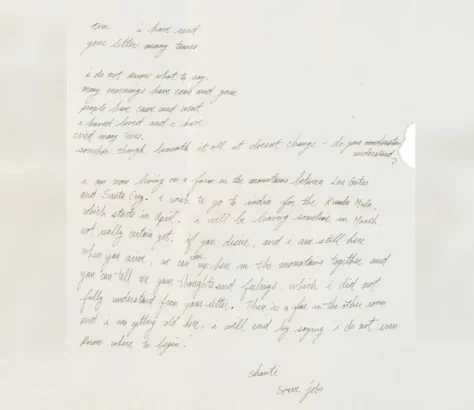 tim i have read
your letter many times
i do not know what to say.
many mornings have come and gone
people have came and went
i have loved and i have
cried many times.
somehow, though, beneath it all it doesn't change - do you
understand
?
i am now living on a farm in the mountains between Los Gatos
and Santa Cruz. i wish to go to india for the Kumba Mela,
which starts in April. i will be leaving sometime in March,
not really certain yet. if you desire, and i am still here
when you arive, we can up here in the mountains together and
you can tell me your thoughts and feelings, which i did not
fully understand from your letter. There is a fire in the other room
and i am getting cold here. i will end by saying i do not even
know where to begin.
shanti
steve jobs